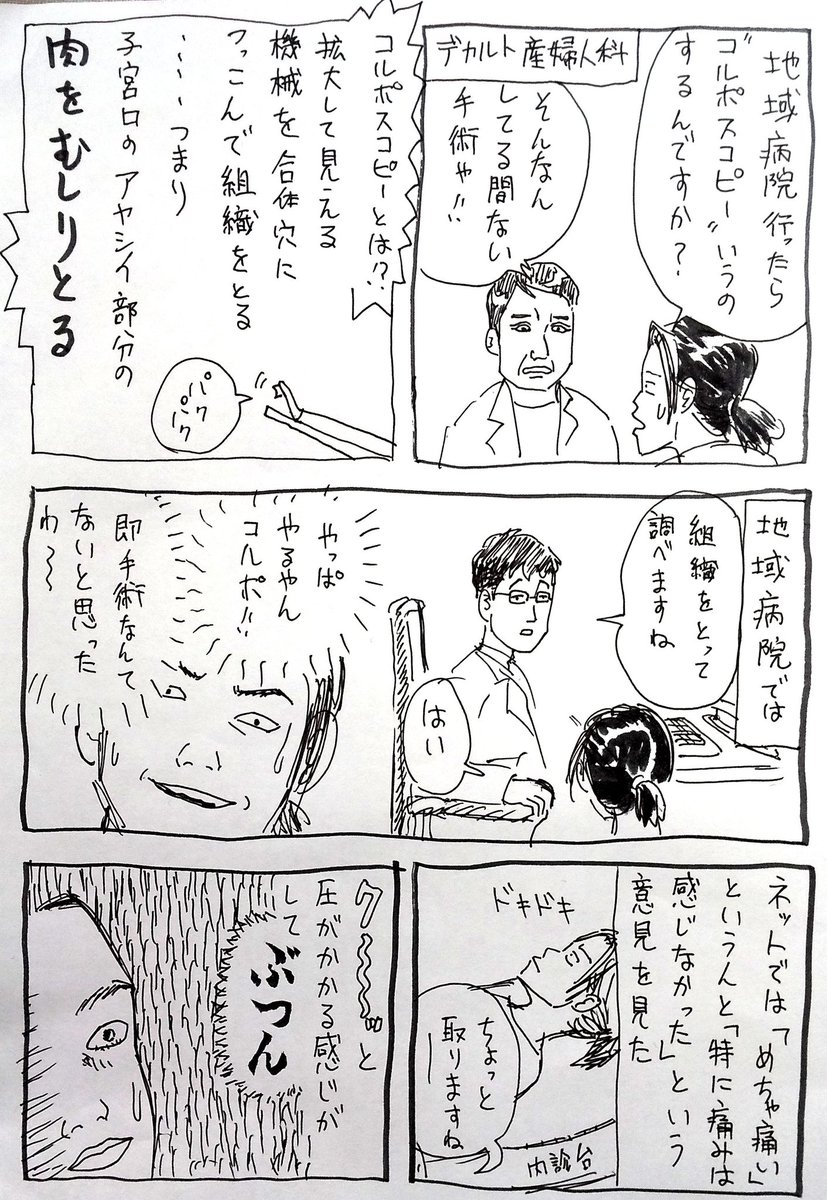 デカルト産婦人科
地域病院行ったら
"コルポスコピー"いうの
するんですか?
そんなん
してる間ない
手術や!!
コルポスコピーとは!?
拡大して見える
機械を合体穴に
つっこんで組織をとる
・・・・つまり
子宮口のアヤシイ部分の
肉をむしりとる
パク
パク
地域病院では
組織をとって
調べますね
はい
やっぱ
やるやん
コルポ!!
即手術なんて
ないと思った
わ〜〜
ネットでは「めちゃ痛い」
というんと「特に痛みは
感じなかった」という
意見を見た
ドキドキ
ちょっと
取りますねー
内診台
ク〜〜ッと
圧がかかる感じが
して
ぶつん